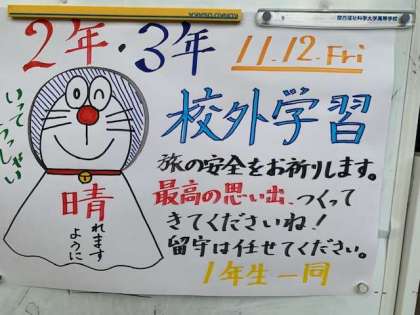 2年・3年
11.12.Fri
いってらっしゃい
校外学習
旅の安全をお祈りします。
最高の思い出、つくって
きてくださいね！
留守は任せてください。
1年生一同
晴
れます
ように